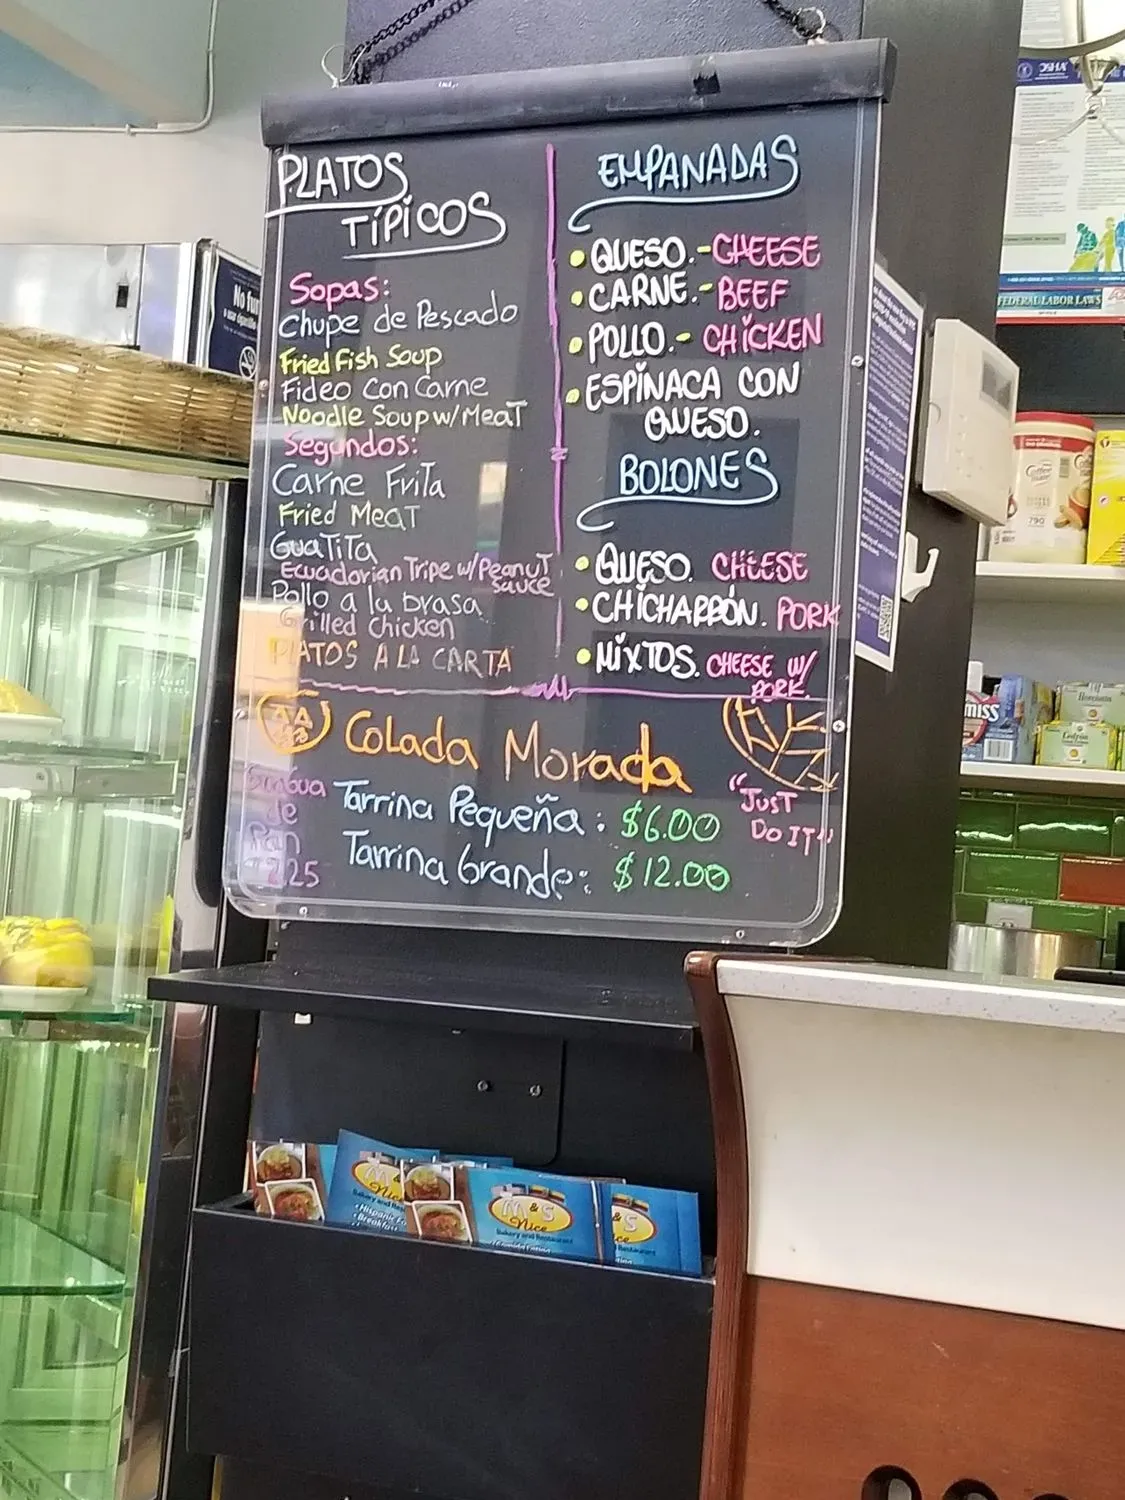 PLATOS
TÍPICOS
Sopas:
Chupe de Pescado
Fried Fish Soup
Fideo Con Carne
Noodle Soup w/Meat
Segundos:
Carne Frita
Fried Meat
Guatita
Ecuadorian Tripe w/Peanut
sauce
Pollo a la brasa
Grilled Chicken
PLATOS A LA CARTA
EMPANADAS
QUESO.-CHEESE
CARNE.-BEEF
POLLO.-CHICKEN
ESPINACA CON
QUESO.
BOLONES
QUESO. CHEESE
CHICHARRÓN. PORK
MIXTOS. CHEESE W/
PORK.
Colada Morada
Tarrina Pequeña: $6.00
Tarrina Grande: $12.00
de
Pan
2.25
"JUST
DO IT"
No fu
OSHA
FEDERAL LABOR LAWS
Coffee
mate
790
miss
Horchata
Cedrón
M & S
Nice
Bakery and Res
Hispanic Fo
Breakfast
M & S
Nice
Bakery and Restaurant
& S
ice
Restaurant